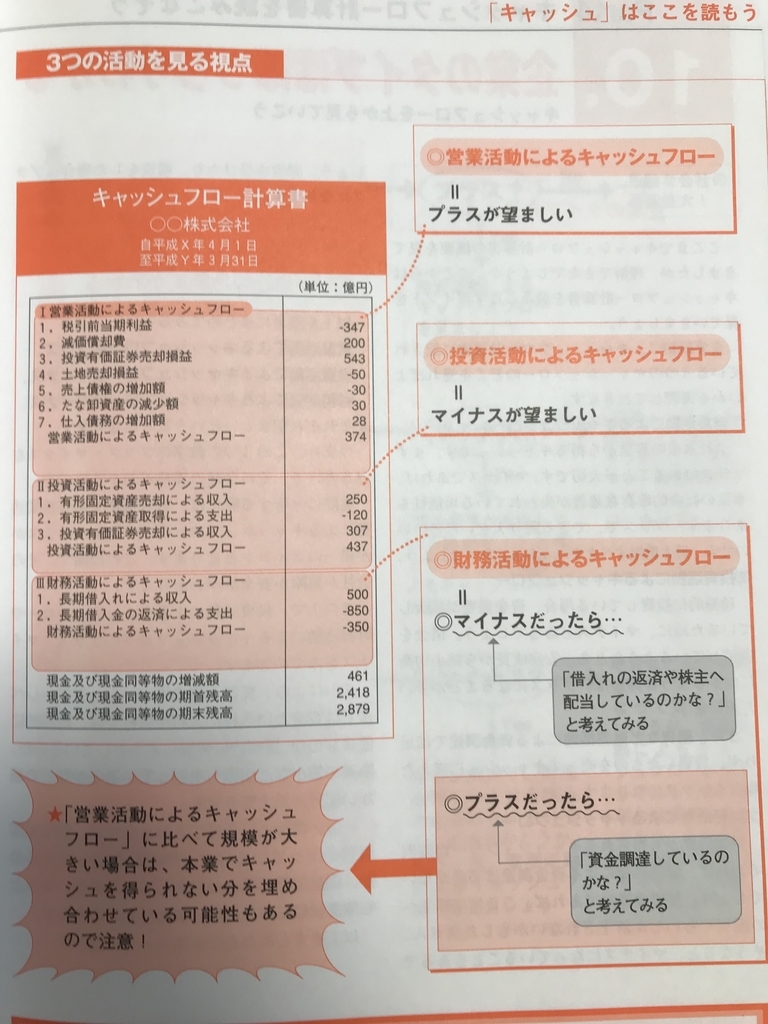 「キャッシュ」はここを読もう
3つの活動を見る視点
キャッシュフロー計算書
○○株式会社
自平成X年4月1日
至平成Y年3月31日
(単位:億円)
Ⅰ営業活動によるキャッシュフロー
1. 税引前当期利益 -347
2. 減価償却費 200
3. 投資有価証券売却損益 543
4. 土地売却損益 -50
5. 売上債権の増加額 -30
6. たな卸資産の減少額 30
7. 仕入債務の増加額 28
営業活動によるキャッシュフロー 374
Ⅱ投資活動によるキャッシュフロー
1. 有形固定資産売却による収入 250
2. 有形固定資産取得による支出 -120
3. 投資有価証券売却による収入 307
投資活動によるキャッシュフロー 437
Ⅲ財務活動によるキャッシュフロー
1. 長期借入れによる収入 500
2. 長期借入金の返済による支出 -850
財務活動によるキャッシュフロー -350
現金及び現金同等物の増減額 461
現金及び現金同等物の期首残高 2,418
現金及び現金同等物の期末残高 2,879
◎営業活動によるキャッシュフロー
=
プラスが望ましい
◎投資活動によるキャッシュフロー
=
マイナスが望ましい
◎財務活動によるキャッシュフロー
=
◎マイナスだったら…
「借入れの返済や株主へ
配当しているのかな?」
と考えてみる
◎プラスだったら…
「資金調達しているの
かな?」
と考えてみる
★「営業活動によるキャッシュ
フロー」に比べて規模が大
きい場合は、本業でキャッ
シュを得られない分を埋め
合わせている可能性もある
ので注意!